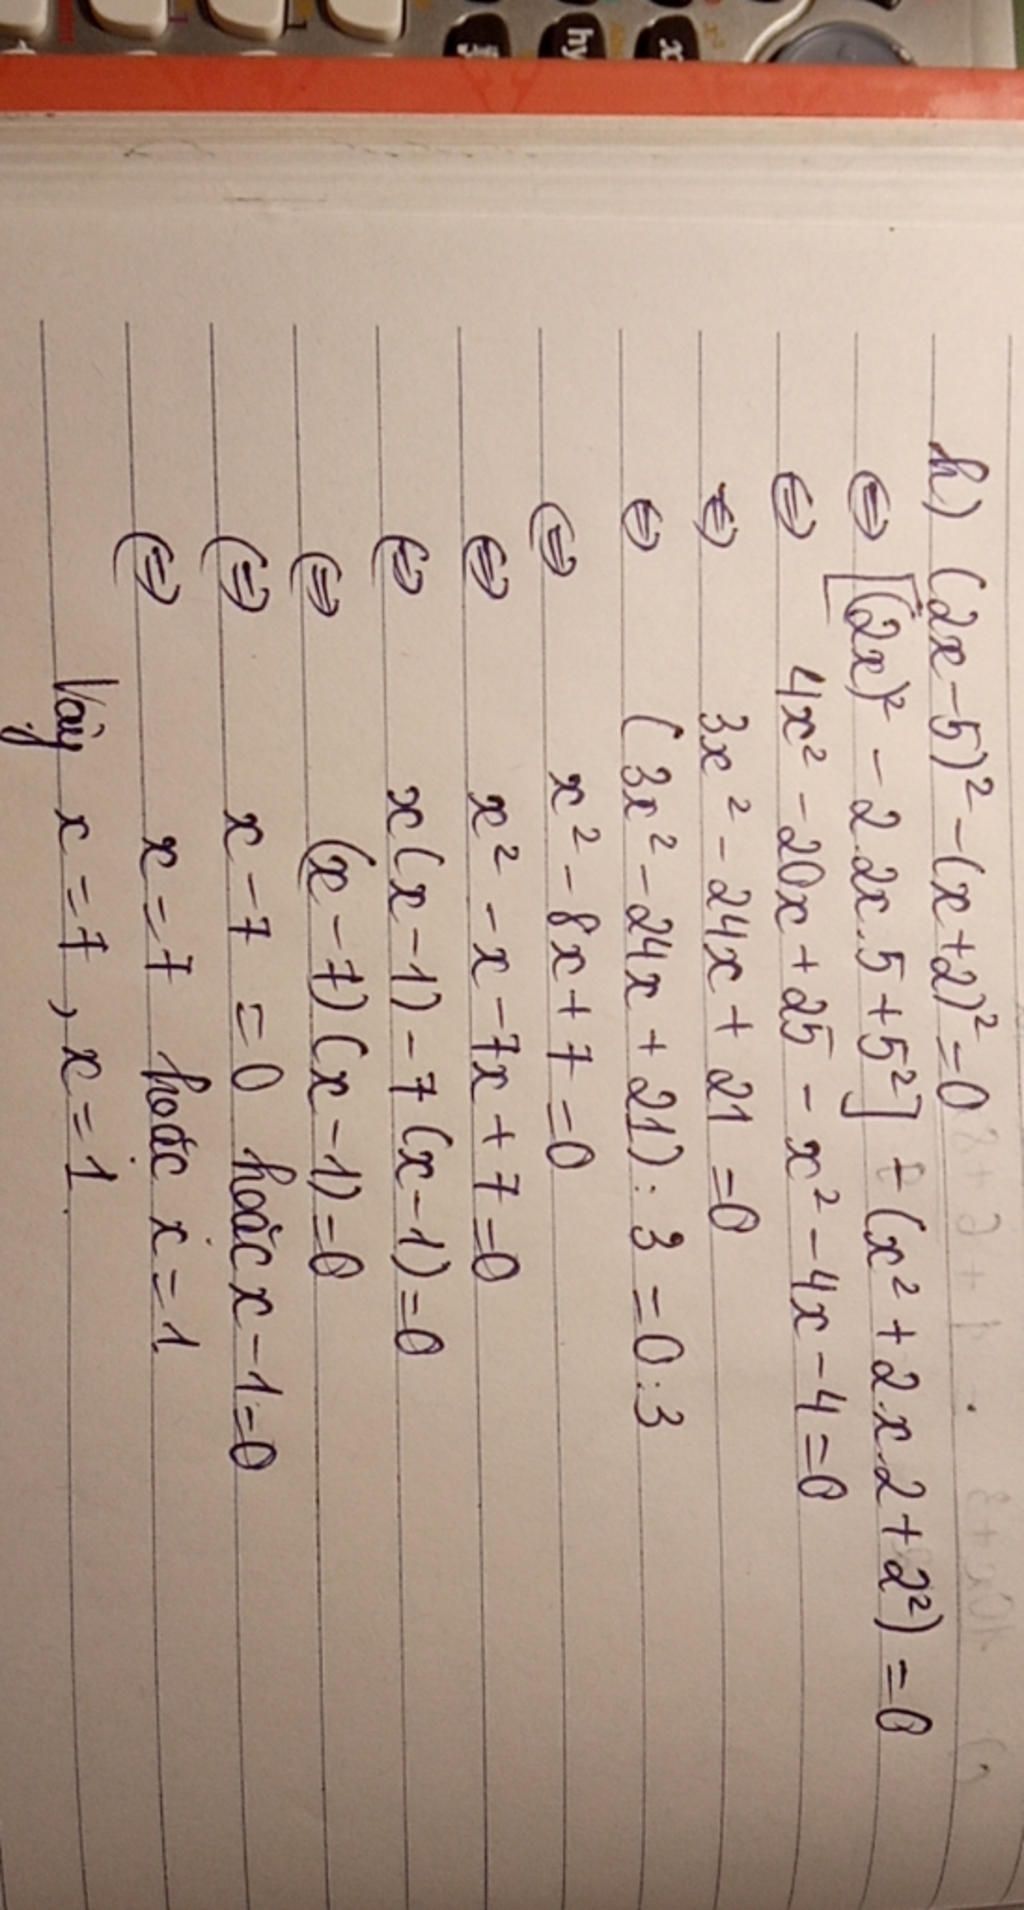 h) (2x-5)² - (x+2)² = 0
⇔ [(2x)² - 2.2x.5 + 5²] - (x² + 2.x.2 + 2²) = 0
⇔ 4x² - 20x + 25 - x² - 4x - 4 = 0
⇔ 3x² - 24x + 21 = 0
⇔ (3x² - 24x + 21) : 3 = 0 : 3
⇔ x² - 8x + 7 = 0
⇔ x² - x - 7x + 7 = 0
⇔ x(x-1) - 7(x-1) = 0
⇔ (x-7)(x-1) = 0
⇔ x - 7 = 0 hoặc x - 1 = 0
⇔ x = 7 hoặc x = 1
Vậy x = 7, x = 1.
hy
x